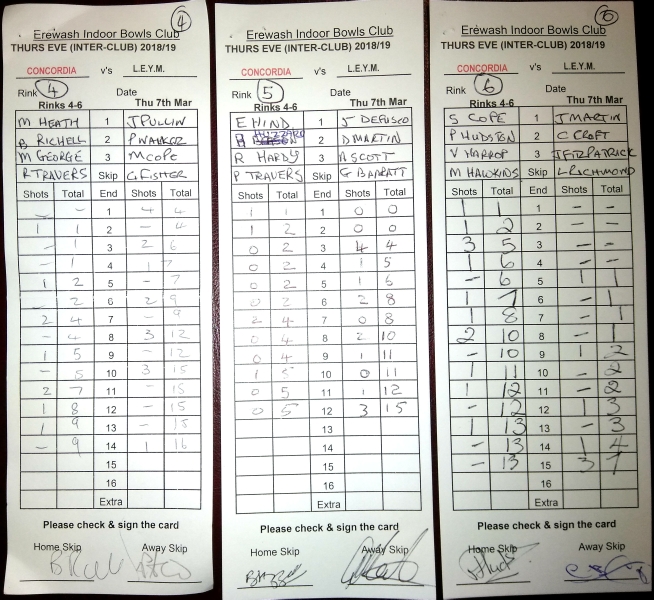 4
Erewash Indoor Bowls Club
THURS EVE (INTER-CLUB) 2018/19
CONCORDIA v's L.E.Y.M.
Rink 4 Date
Rinks 4-6 Thu 7th Mar
M HEATH 1 J PULLIN
B RICHELL 2 P WALKER
M GEORGE 3 M COPE
R TRAVERS Skip G FISHER
Shots Total End Shots Total
- - 1 4 4
1 1 2 - 4
- 1 3 2 6
- 1 4 1 7
1 2 5 - 7
- 2 6 2 9
2 4 7 - 9
- 4 8 3 12
1 5 9 - 12
- 5 10 3 15
2 7 11 - 15
1 8 12 - 15
1 9 13 - 15
- 9 14 1 16
15
16
Extra
Please check & sign the card
Home Skip Away Skip
Erewash Indoor Bowls Club
THURS EVE (INTER-CLUB) 2018/19
CONCORDIA v's L.E.Y.M.
Rink 5 Date
Rinks 4-6 Thu 7th Mar
E HIND 1 J DEFUSCO
2 D MARTIN
R HARDY 3 A SCOTT
P TRAVERS Skip G BARRATT
Shots Total End Shots Total
1 1 1 0 0
1 2 2 0 0
0 2 3 4 4
0 2 4 1 5
0 2 5 1 6
0 2 6 2 8
2 4 7 0 8
0 4 8 2 10
0 4 9 1 11
1 5 10 0 11
0 5 11 1 12
0 5 12 3 15
13
14
15
16
Extra
Please check & sign the card
Home Skip Away Skip
6
Erewash Indoor Bowls Club
THURS EVE (INTER-CLUB) 2018/19
CONCORDIA v's L.E.Y.M.
Rink 6 Date
Rinks 4-6 Thu 7th Mar
S COPE 1 J MARTIN
P HUDSTON 2 C CROFT
V HARROP 3 J FITZPATRICK
M HAWKINS Skip L RICHMOND
Shots Total End Shots Total
1 1 1 - -
1 2 2 - -
3 5 3 - -
1 6 4 - -
- 6 5 1 1
1 7 6 - 1
1 8 7 - 1
2 10 8 - 1
- 10 9 1 2
1 11 10 - 2
1 12 11 - 2
- 12 12 1 3
1 13 13 - 3
- 13 14 1 4
- 13 15 3 7
16
Extra
Please check & sign the card
Home Skip Away Skip